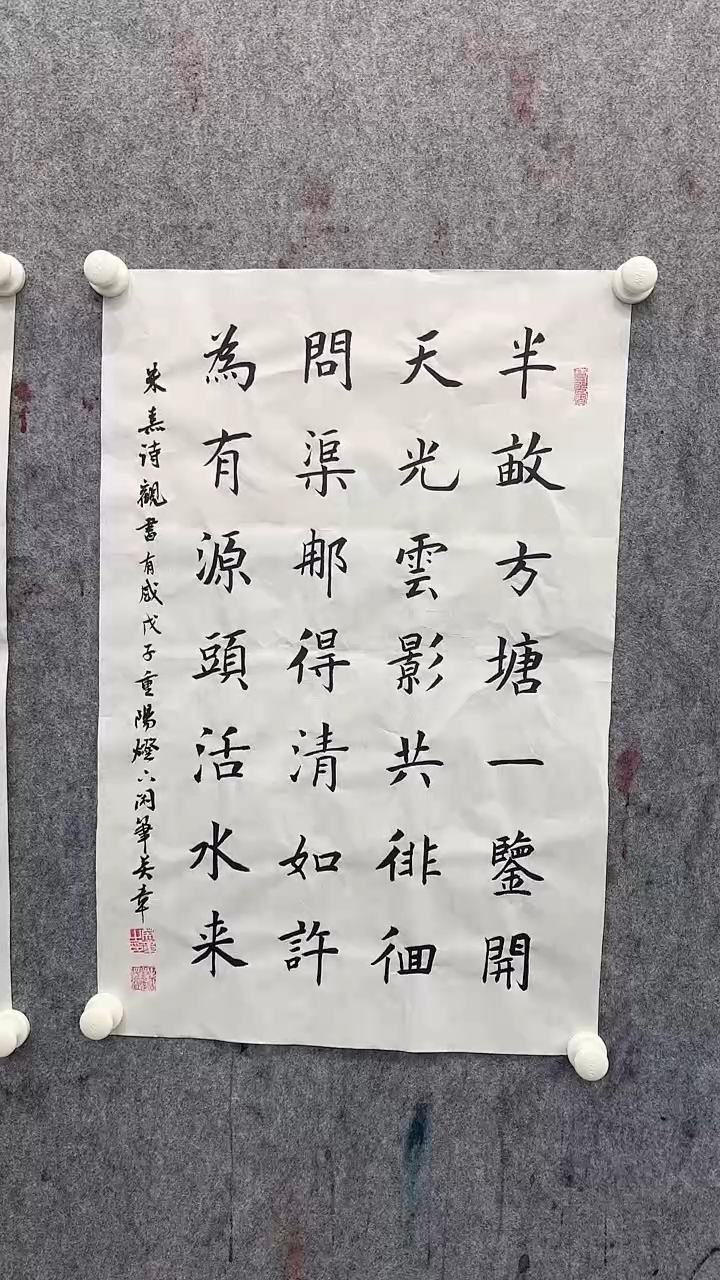 半畝方塘一鑒開
天光雲影共徘徊
問渠那得清如許
為有源頭活水来
朱熹诗觀書有感戊子重陽燈下闲筆